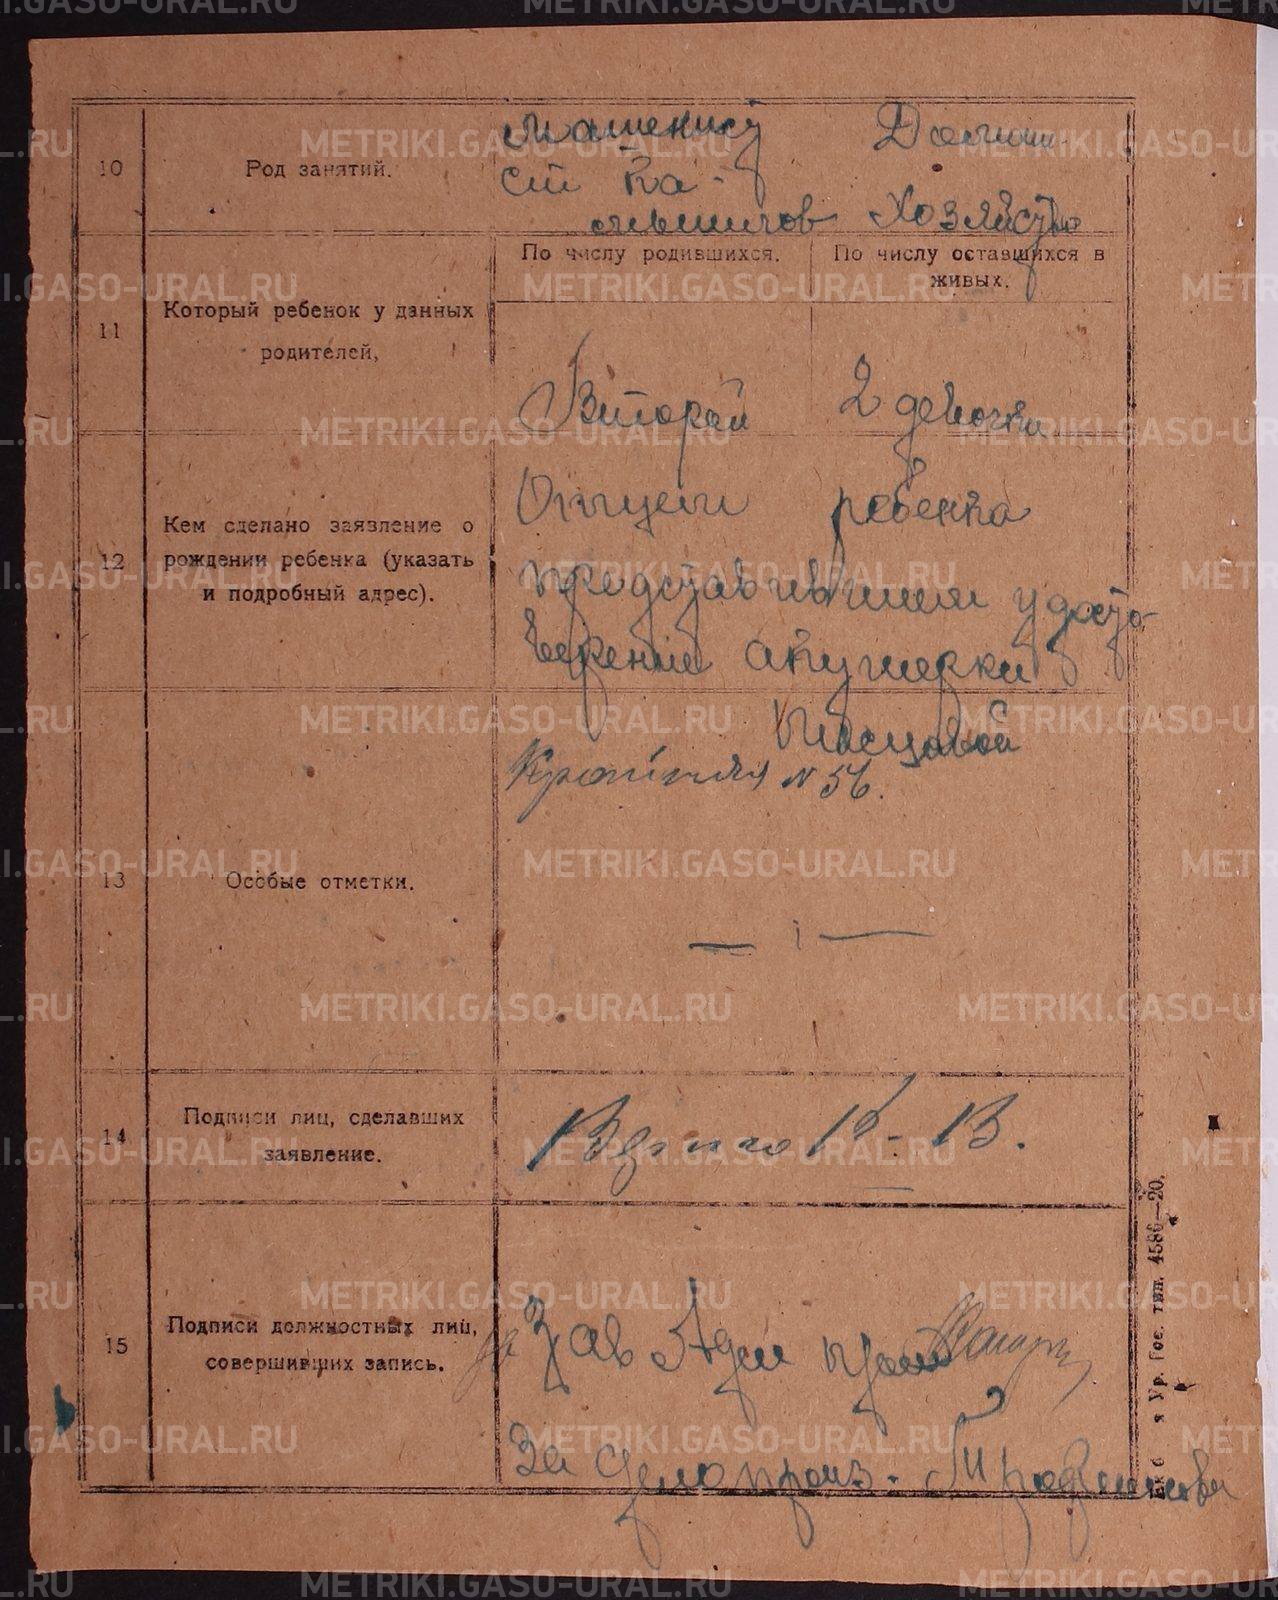 10
Род занятий.
Машенист Домаш.
ст Ка-
мышлов Хозяйство
По числу родившихся.
По числу оставшихся в живых.
11
Который ребенок у данных
родителей,
Второй
2 девочки
12
Кем сделано заявление о
рождении ребенка (указать
и подробный адрес).
Отцем ребенка
представившим удосто-
верение акушерки
Крайняя N 56.
13
Особые отметки.
14
Подписи лиц, сделавших
заявление.
15
Подписи должностных лиц,
совершивших запись.
за Зав
За делопроиз.
я Ур. Гос. тип. 4586—20.
METRIKI.GASO-URAL.RU